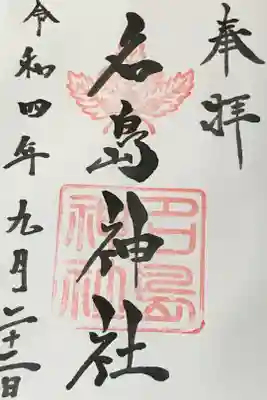 奉拝
名島神社
名島神社
令和四年九月二十二日